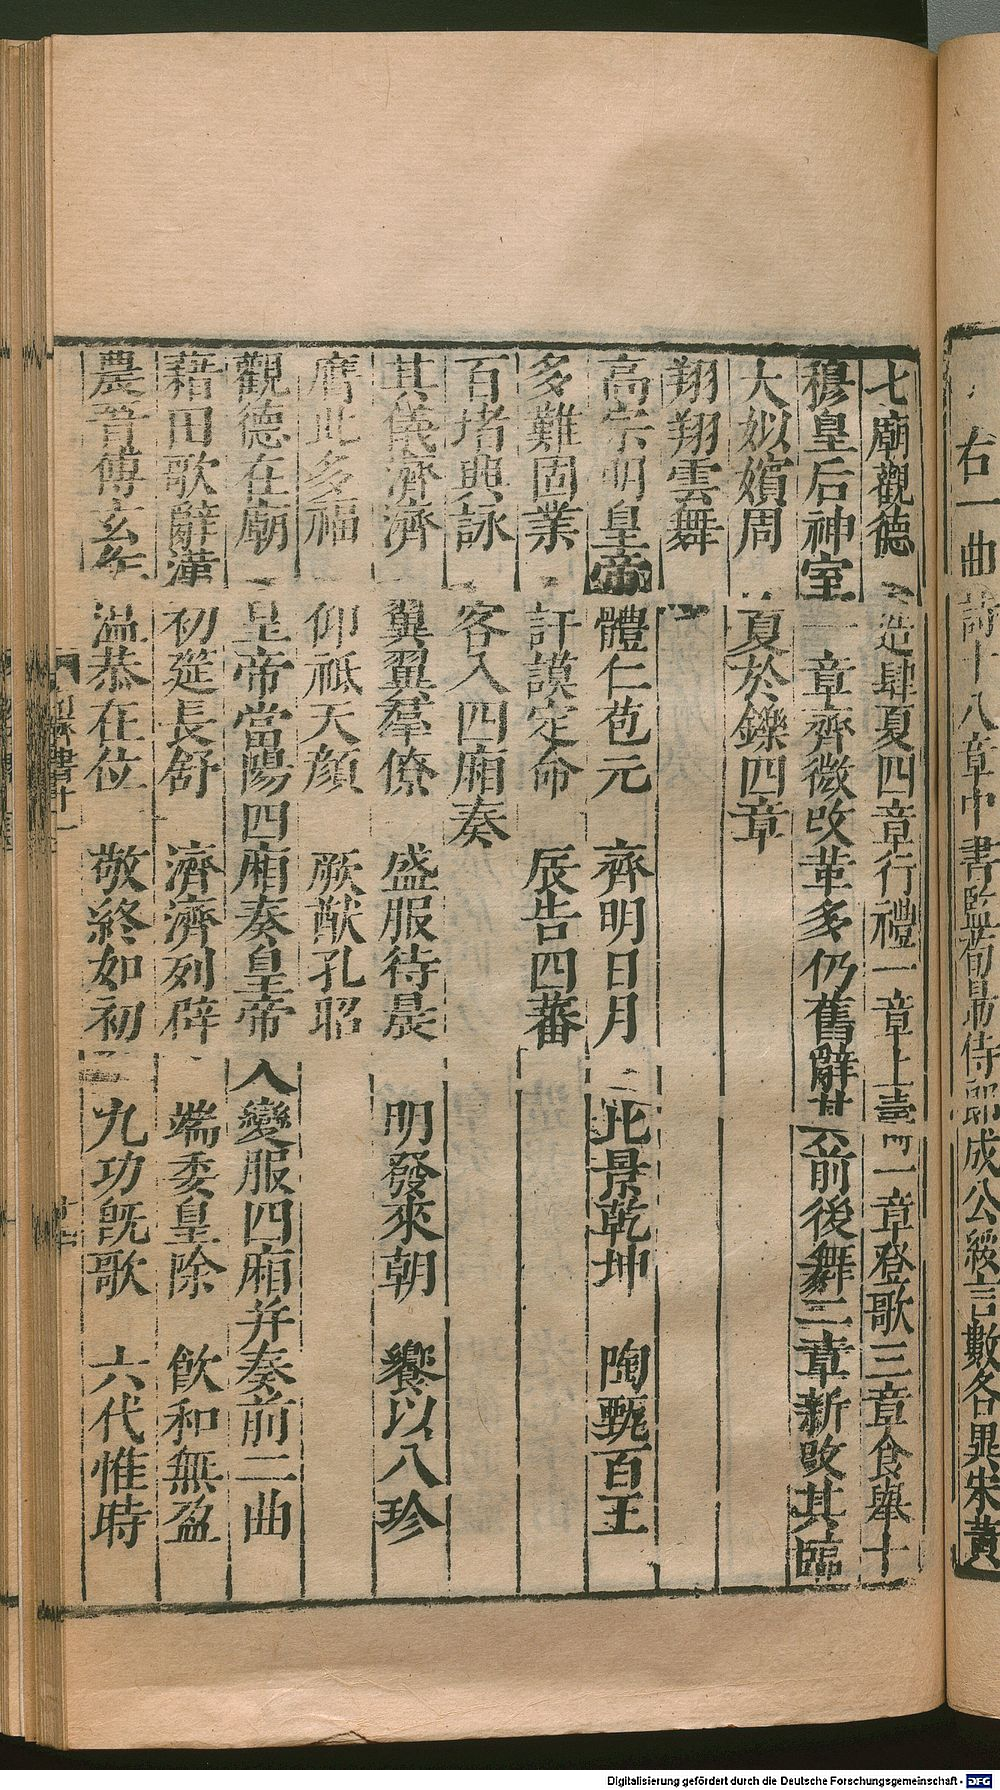 右一曲 詩十八章中書監荀勗侍郎成公綏言數各異宋黃
七廟觀德 造肆夏四章行禮一章上壽一章登歌三章食舉十
穆皇后神室 一章齊微改革多仍舊辭 前後舞二章新改其臨
大姒嬪周 夏於鑠四章
翔翔雲舞
高宗明皇帝 體仁苞元 齊明日月 比景乾坤 陶甄百王
多難固業 訏謨定命 辰告四蕃
百堵興詠 客入四廂奏
其儀濟濟 翼翼羣僚 盛服待晨 明發來朝 饗以八珍
膺此多福 仰祗天顏 厥猷孔昭
觀德在廟 皇帝當陽四廂奏皇帝 入變服四廂并奏前二曲
藉田歌辭漢 初筵長舒 濟濟列辟 端委皇除 飲和無盈
農 傅玄 溫恭在位 敬終如初 九功旣歌 六代惟時
Digitalisierung gefördert durch die Deutsche Forschungsgemeinschaft - DFG